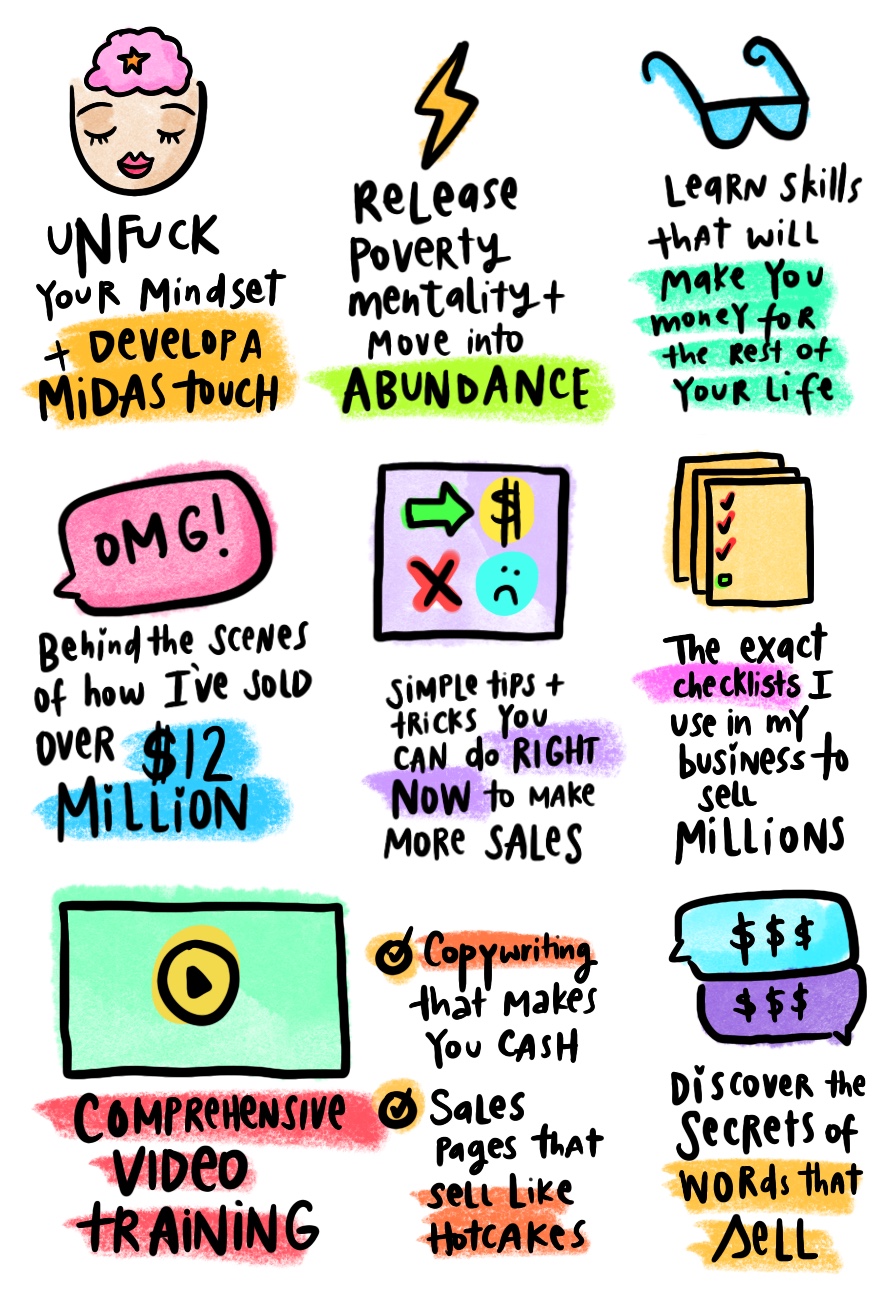 UNFUCK
YOUR Mindset
+ DEVELOP A
MiDAS tOUCH
RELEASE
POVERTY
mentality +
MOVE into
ABUNDANCE
LEARN Skills
tHAT WiLL
Make YOU
money for
the REST of
YOUR Life
OMG!
Behind the SCENES
of how I've SOLD
OVER $12
MiLLiON
$
SiMPLE tiPS +
tRiCKS YOU
CAN do RIGHT
NOW to MAKE
MORE SALES
The exact
checklists I
use in my
business to
sell
MiLLiONS
COMPREHENSIVE
VIDEO
tRAiNiNG
Copywriting
that MAKES
YOU CASH
SALES
PAGES tHAT
SELL LiKE
HOTCAKES
$ $ $
$ $ $
DiSCOVER the
SECRETS of
WORds that
SELL